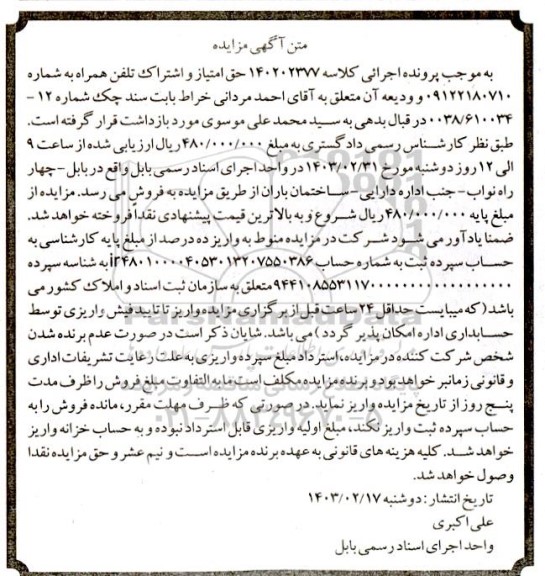 متن آگهی مزایده
به موجب پرونده اجرائی کلاسه ۱۴۰۲۰۲۳۷۷ حق امتیاز و اشتراک تلفن همراه به شماره
۰۹۱۲۲۱۸۰۷۱۰ و ودیعه آن متعلق به آقای احمد مردانی خراط بابت سند چک شماره ۱۲-
۰۰۳۸/۶۱۰۰۳۴ در قبال بدهی به سید محمد علی موسوی مورد بازداشت قرار گرفته است.
طبق نظر کارشناس رسمی دادگستری به مبلغ ۴۸۰/۰۰۰/۰۰۰ ریال ارزیابی شده از ساعت ۹
الی ۱۲ روز دوشنبه مورخ ۱۴۰۳/۰۲/۳۱ در واحد اجرای اسناد رسمی بابل واقع در بابل-چهار
راه نواب-جنب اداره دارایی-ساختمان باران از طریق مزایده به فروش می رسد. مزایده از
مبلغ پایه ۴۸۰/۰۰۰/۰۰۰ ریال شروع و به بالاترین قیمت پیشنهادی نقدا فروخته خواهد شد.
ضمنا یادآور می شود شرکت در مزایده منوط به واریز ده درصد از مبلغ پایه کارشناسی به
حساب سپرده ثبت به شماره حساب ir۴۸۰۱۰۰۰۰۴۰۵۳۰۱۳۲۰۷۵۵۰۳۸۶ به شناسه سپرده
۹۴۴۱۰۸۵۵۳۱۱۷۰۰۰۰۰۰۰۰۰۰۰۰۰۰۰۰۰۰ متعلق به سازمان ثبت اسناد و املاک کشور می
باشد (که میبایست حداقل ۲۴ ساعت قبل از برگزاری مزایده واریز تا تایید فیش واریزی توسط
حسابداری اداره امکان پذیر گردد) می باشد. شایان ذکر است در صورت عدم برنده شدن
شخص شرکت کننده در مزایده، استرداد مبلغ سپرده واریزی به علت رعایت تشریفات اداری
و قانونی زمانبر خواهد بود و برنده مزایده مکلف است مابه التفاوت مبلغ فروش را ظرف مدت
پنج روز از تاریخ مزایده واریز نماید. در صورتی که ظرف مهلت مقرر، مانده فروش را به
حساب سپرده ثبت واریز نکند، مبلغ اولیه واریزی قابل استرداد نبوده و به حساب خزانه واریز
خواهد شد. کلیه هزینه های قانونی به عهده برنده مزایده است و نیم عشر و حق مزایده نقدا
وصول خواهد شد.
تاریخ انتشار: دوشنبه ۱۴۰۳/۰۲/۱۷
علی اکبری
واحد اجرای اسناد رسمی بابل